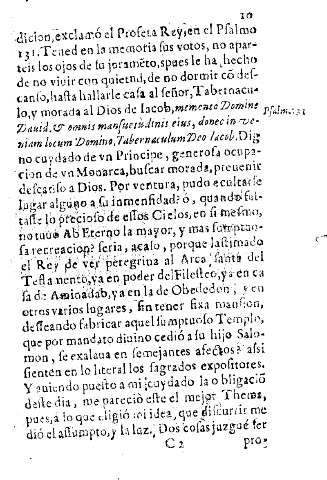 10
dicion, exclamó el Profeta Rey, en el Psalmo
131. Tened en la memoria sus votos, no apar-
teis los ojos de su juramẽto, pues le ha hecho
de no vivir con quietud, de no dormir cõ des-
canso, hasta hallarle casa al señor, Tabernacu-
lo, y morada al Dios de Iacob, memento Domine
Psalm. 131
David, & omnis mansuetudinis eius, donec in ve-
niam locum Domino, Tabernaculum Deo Iacob. Dig
no cuydado de vn Principe, generosa ocupa-
cion de vn Monarca, buscar morada, prevenir
descanso a Dios. Por ventura, pudo ocultarse
lugar alguno a su inmensidad? ó, quando fal-
taste lo precioso de essos Cielos, en si mesmo,
no tuuo Ab Eterno la mayor, y mas sumptuo-
sa recreacion? seria, acaso, porque lastimado
el Rey de ver peregrina al Arca santa del
Testamento, ya en poder del Filesteo, ya en ca
sa de Aminadab, ya en la de Obededon, y en
otros varios lugares, sin tener fixa mansion,
desseando fabricar aquel sumptuoso Templo,
que por mandato diuino cedió a su hijo Salo-
mon, se exalaua en semejantes afectos? assi
sienten en lo literal los sagrados expositores.
Y auiendo puesto a mi cuydado la obligació
deste dia, me pareció este el mejor Thema,
pues, a lo que eligió mi idea, que discurrir me
dió el assumpto, y la luz. Dos cosas juzgué ser
C 2
pro-